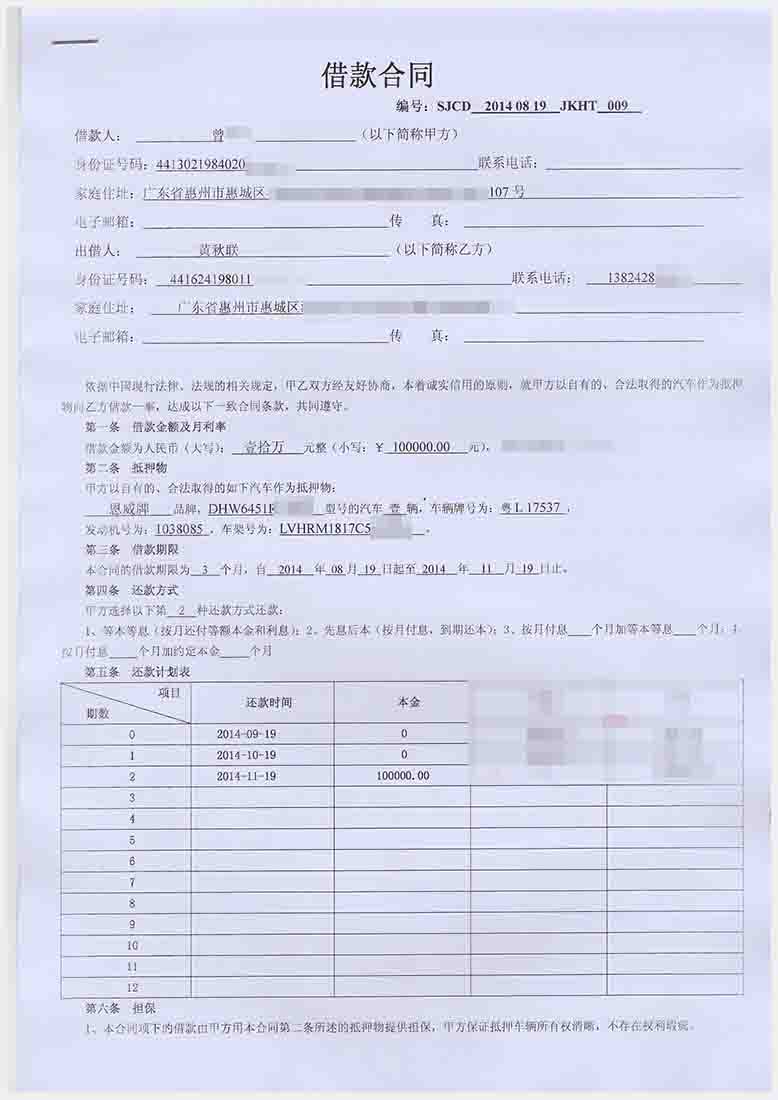 借款合同
编号：SJCD 2014 08 19 JKHT 009
借款人： 曾 （以下简称甲方）
身份证号码：4413021984020 联系电话：
家庭住址：广东省惠州市惠城区 107 号
电子邮箱： 传 真：
出借人： 黄秋联 （以下简称乙方）
身份证号码：441624198011 联系电话： 1382428
家庭住址： 广东省惠州市惠城区
电子邮箱： 传 真：
依据中国现行法律、法规的相关规定，甲乙双方经友好协商，本着诚实信用的原则，就甲方以自有的、合法取得的汽车作为抵押
物向乙方借款一事，达成以下一致合同条款，共同遵守。
第一条 借款金额及月利率
借款金额为人民币（大写）： 壹拾万 元整（小写：￥ 100000.00 元），
第二条 抵押物
甲方以自有的、合法取得的如下汽车作为抵押物：
恩威牌 品牌，DHW6451 型号的汽车 壹 辆，车辆牌号为：粤 L 17537 ，
发动机号为：1038085 ，车架号为：LVHRM1817C5 。
第三条 借款期限
本合同的借款期限为 3 个月，自 2014 年 08 月 19 日起至 2014 年 11 月 19 日止。
第四条 还款方式
甲方选择以下第 2 种还款方式还款：
1、等本等息（按月还付等额本金和利息）；2、先息后本（按月付息，到期还本）；3、按月付息___个月加等本等息___个月；4
按月付息____个月加约定本金____个月
第五条 还款计划表
项目
期数 还款时间 本金
0 2014-09-19 0
1 2014-10-19 0
2 2014-11-19 100000.00
3
4
5
6
7
8
9
10
11
12
第六条 担保
1、本合同项下的借款由甲方用本合同第二条所述的抵押物提供担保，甲方保证抵押车辆所有权清晰，不存在权利瑕疵。